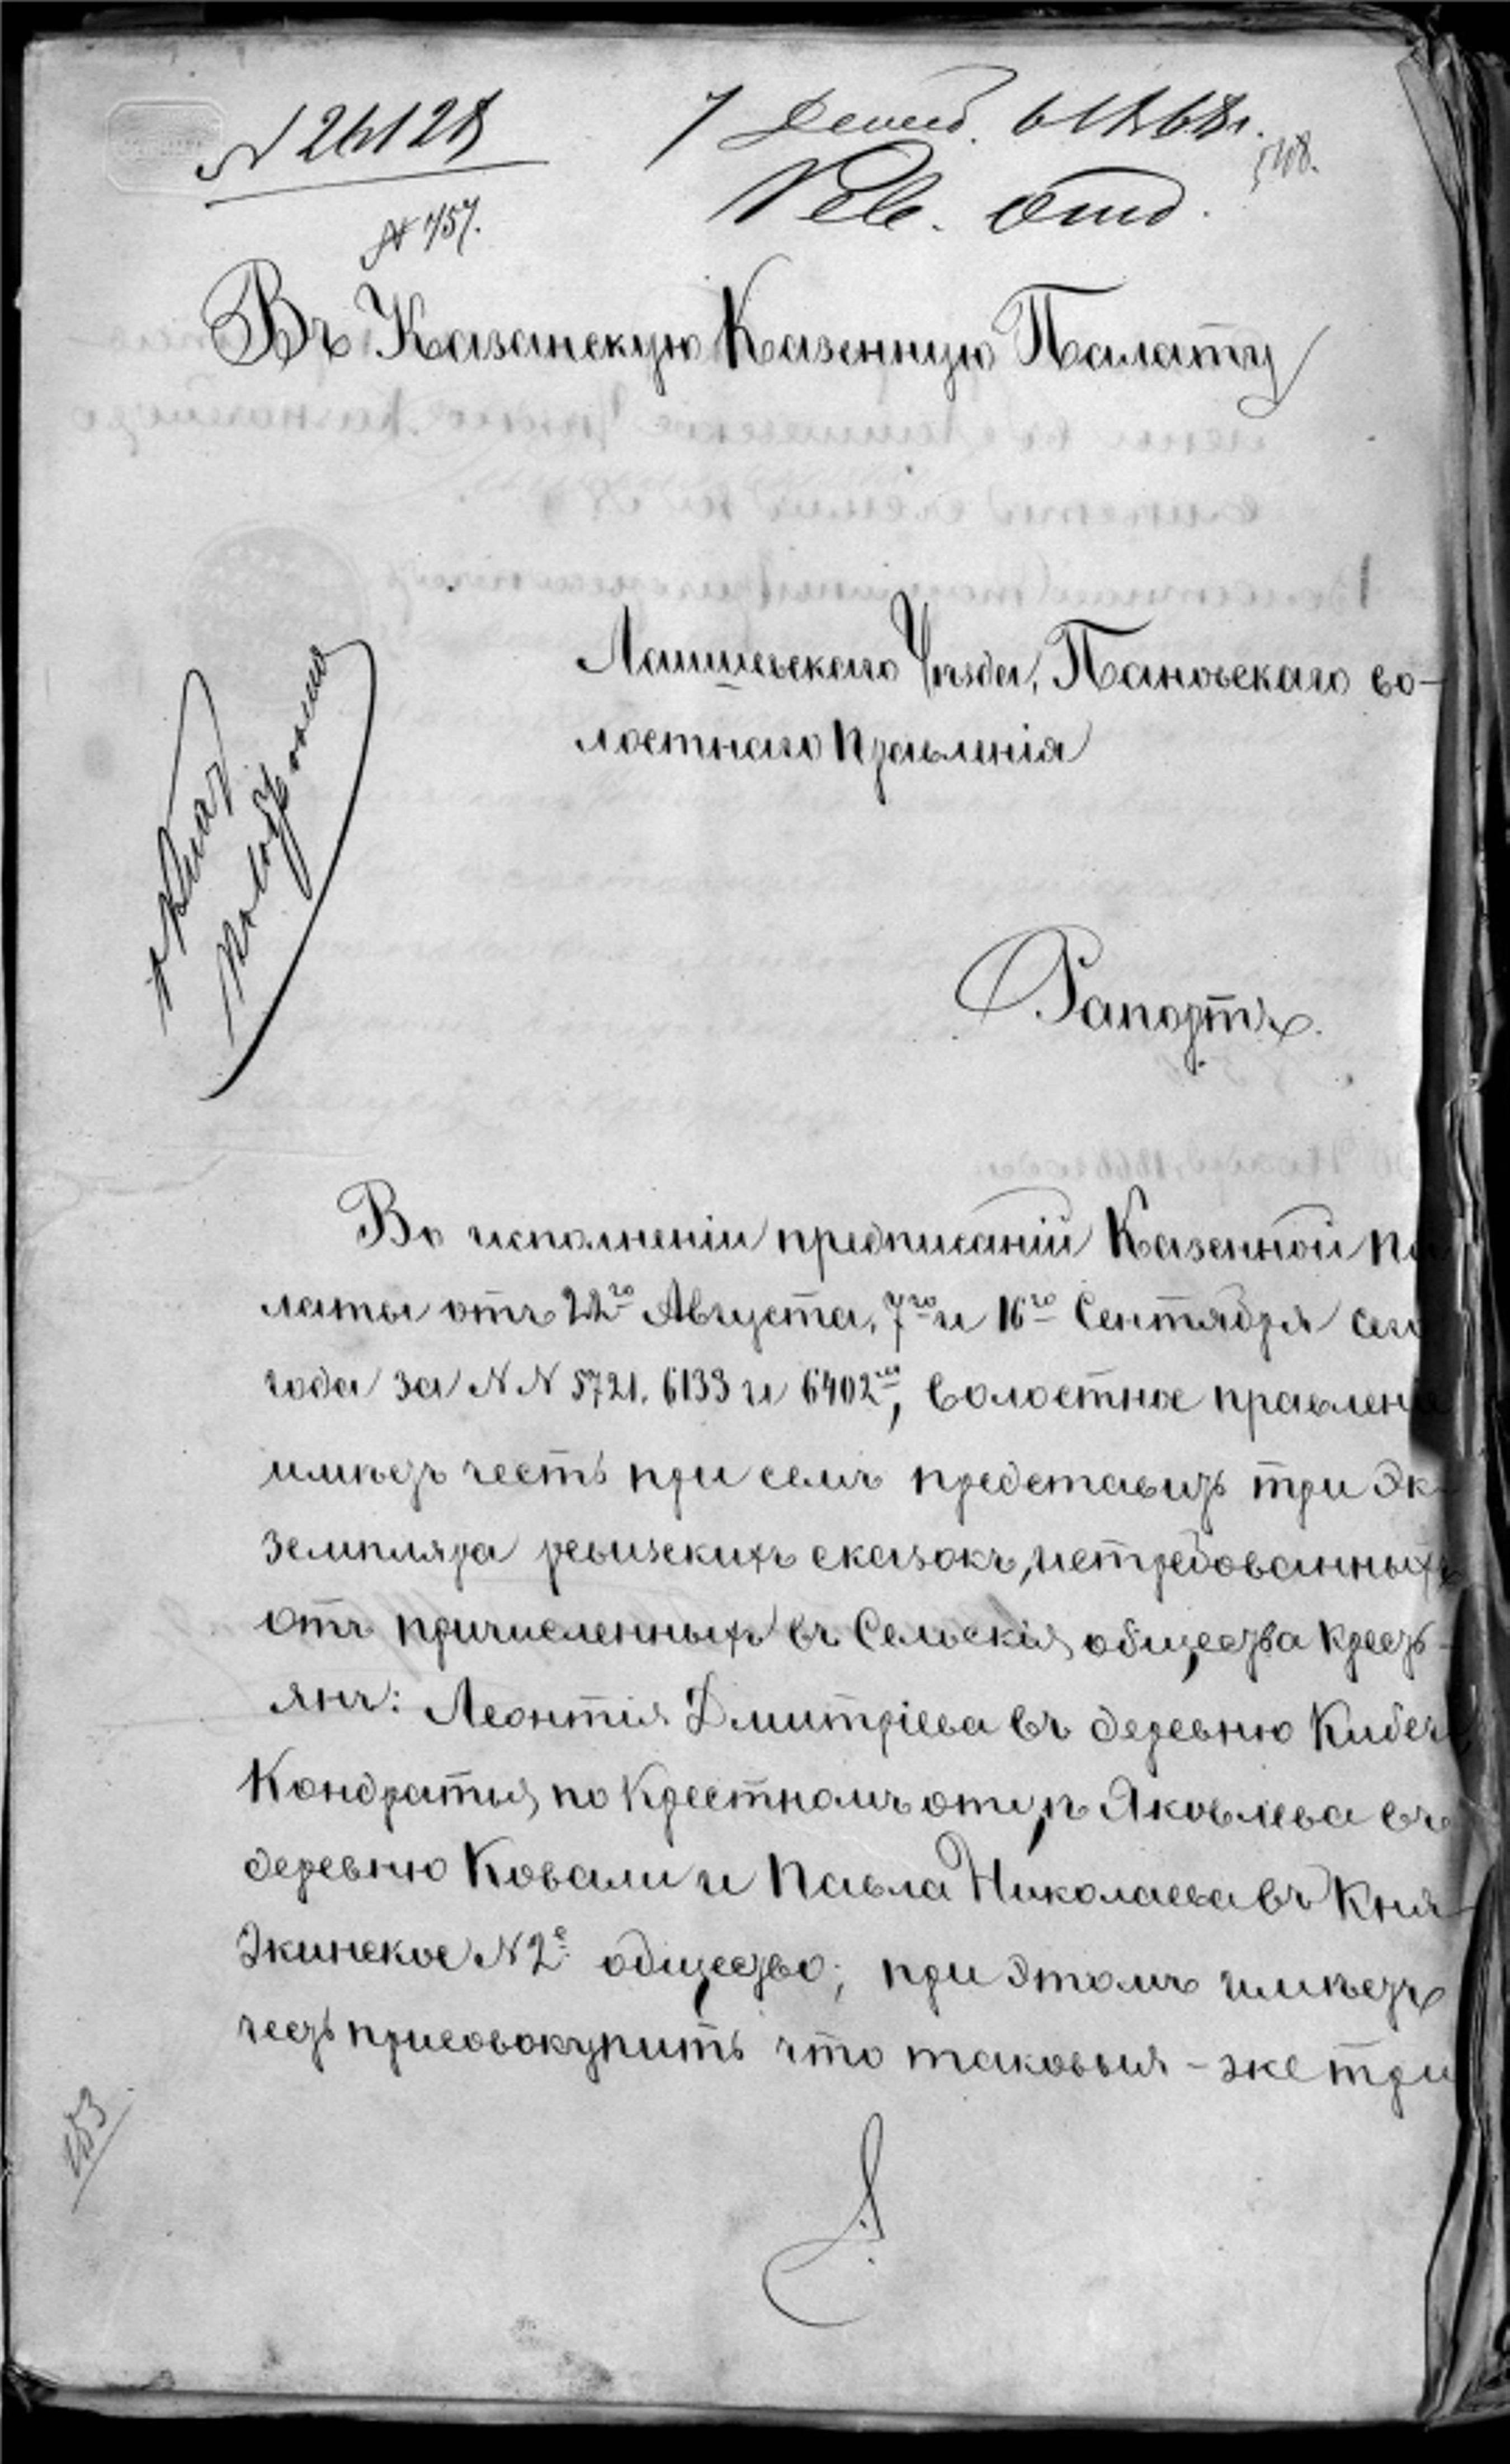 N 26128
7 Декаб. 1868 г.
548.
Рев. Отд.
№ 757.
Въ Казанскую Казенную Палату
Лаишевскаго Уѣзда, Пановскаго во-
лостнаго Правленія
Рапортъ.
Во исполненіи предписаній Казенной Па
латы отъ 22го Августа, 7го и 16го Сентября сего
года за N N 5721. 6133 и 6402, волостное правлен
имѣетъ честь при семъ представить три Эк-
земпляра ревизскихъ сказокъ, истребованныхъ
отъ причисленныхъ въ Сельскія общества кресть-
янъ: Леонтія Дмитріева въ деревню Кибеч
Кондратья, по Крестномъ отцѣ Яковлева въ
деревню Ковали и Павла Николаева въ Кня-
жинское N 2е общество; при этомъ имѣетъ
честь присовокупить что таковыя-же три
183